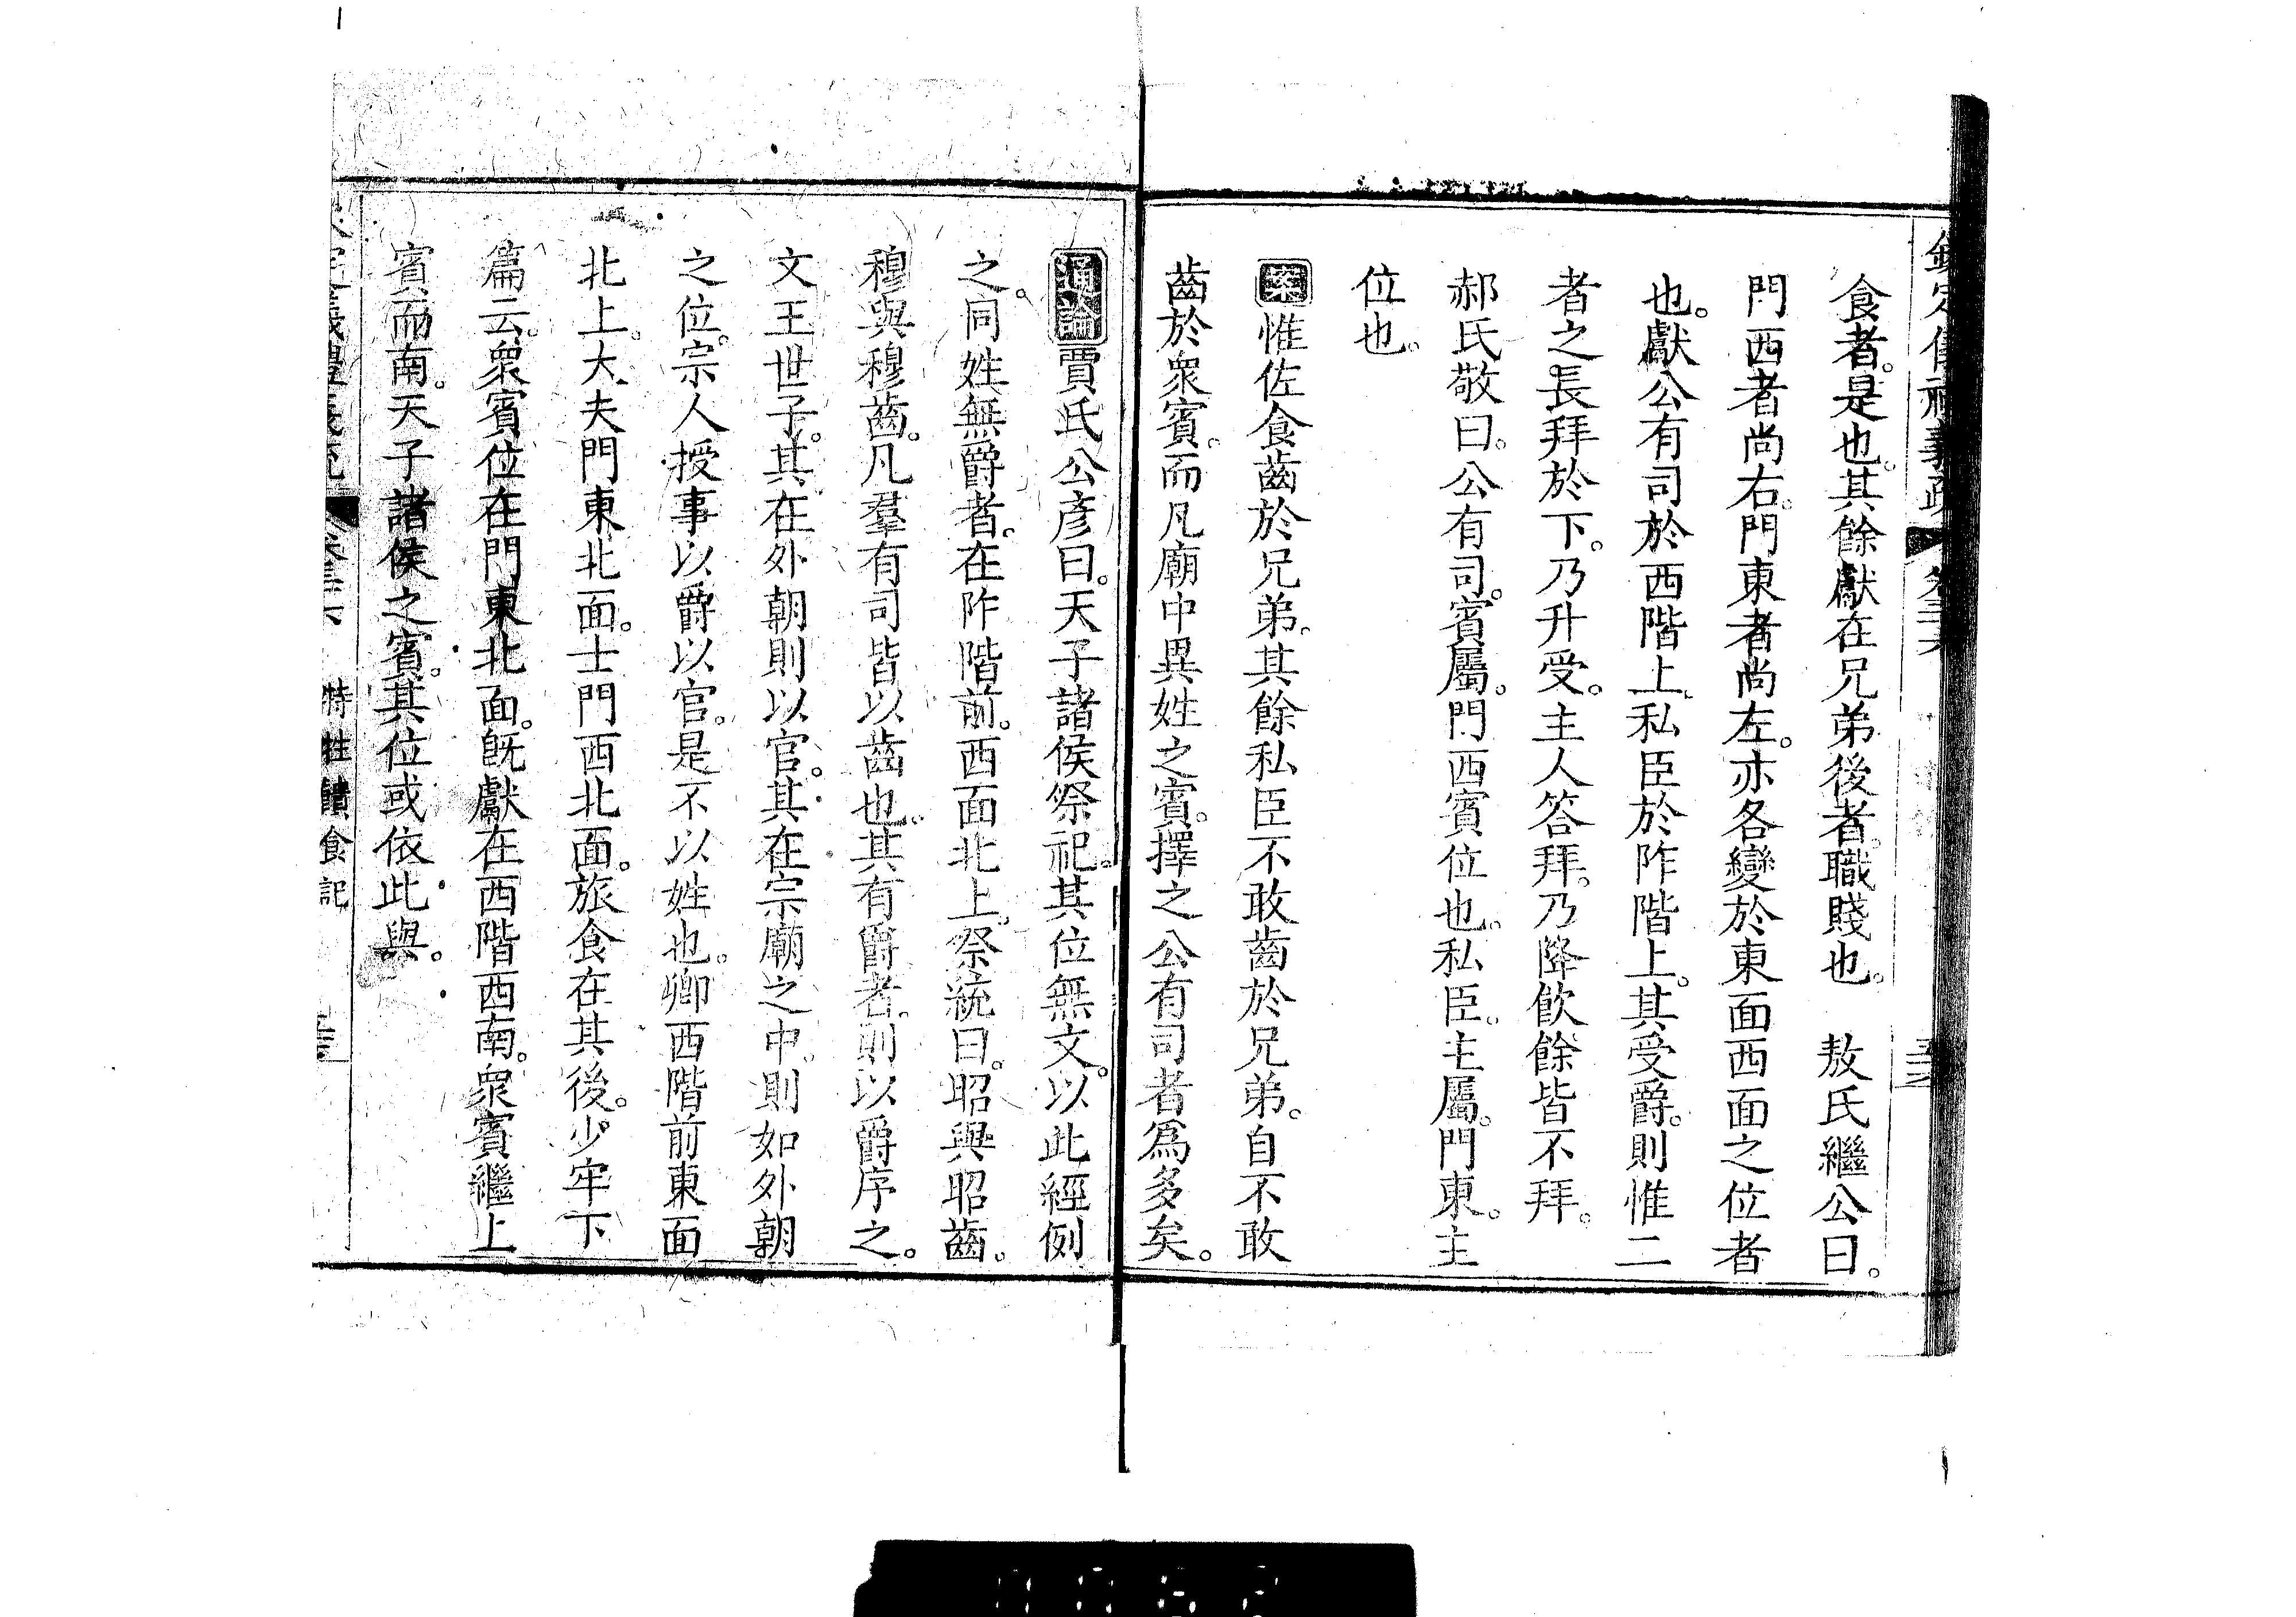 欽定儀禮義疏 卷三十六
食者。是也。其餘獻在兄弟後者。職賤也。 敖氏繼公曰。
門西者尚右。門東者尚左。亦各變於東面西面之位者
也。獻公有司於西階上。私臣於阼階上。其受爵。則惟二
者之長拜於下。乃升受。主人答拜。乃降飲。餘皆不拜。
郝氏敬曰。公有司。賓屬。門西賓位也。私臣。主屬。門東。主
位也。
案惟佐食齒於兄弟。其餘私臣不敢齒於兄弟。自不敢
齒於衆賓。而凡廟中異姓之賓。擇之公有司者為多矣。
通論賈氏公彥曰。天子諸侯祭祀。其位無文。以此經例
之。同姓無爵者。在阼階前。西面北上。祭統曰。昭與昭齒。
穆與穆齒。凡羣有司皆以齒也。其有爵者。則以爵序之。
文王世子。其在外朝則以官。其在宗廟之中。則如外朝
之位。宗人授事以爵以官。是不以姓也。卿西階前東面
北上。大夫門東北面。士門西北面。旅食在其後。少牢下
篇云。衆賓位在門東北面。旣獻在西階西南。衆賓繼上
賓而南。天子諸侯之賓。其位或依此與。
特牲饋食記